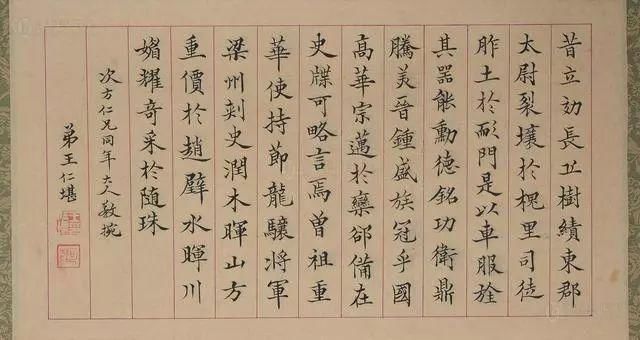 昔立効長丘樹績東郡
太尉裂壤於槐里司徒
胙土於耏門是以車服旌
其器能勳德銘功衛鼎
騰美晉鍾盛族冠乎國
高華宗邁於欒郤備在
史牒可略言焉曾祖重
華使持節龍驤將軍
梁州刺史潤木暉山方
重價於趙璧水暉川
媚耀奇采於隨珠
次方仁兄同年大人教掟
弟王仁堪